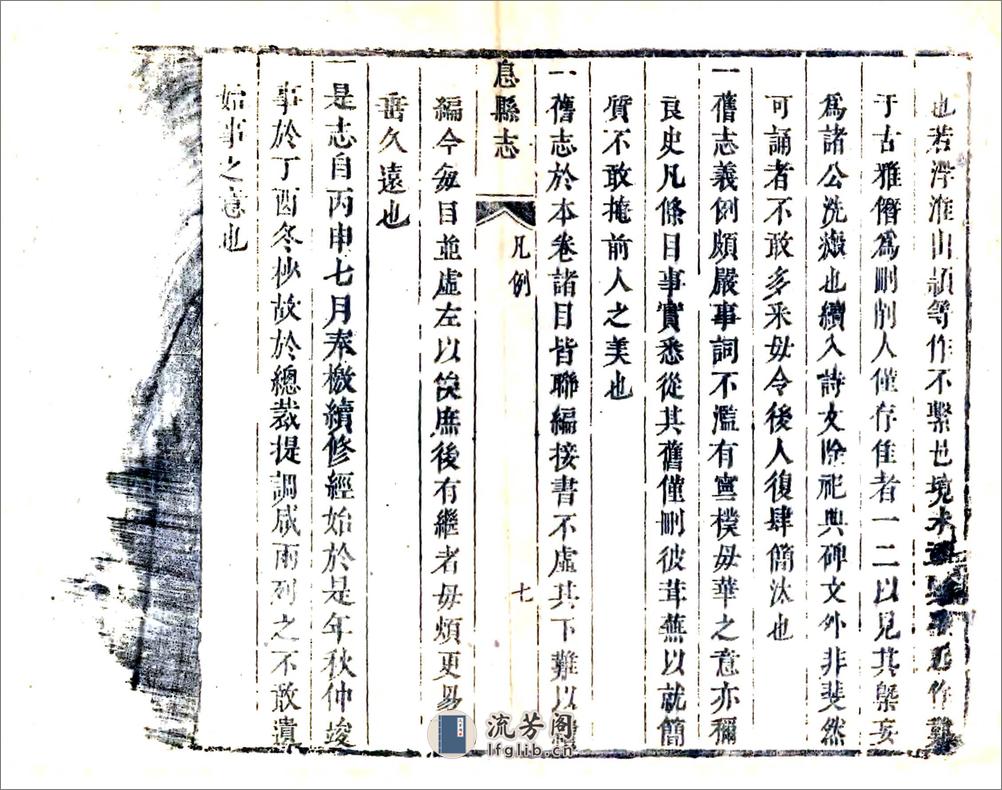 也若浮淮出頴等作不繫邑境水
于古雅僭爲刪削人僅存隹者一二以見其槩妄
爲諸公洗瘢也續入詩文除祀典碑文外非斐然
可誦者不敢多釆毋令後人復肆簡汰也
一舊志義例頗嚴事詞不濫有寧樸毋華之意亦稱
良史凡條目事實悉從其舊僅刪彼茸蕪以就簡
質不敢掩前人之美也
一舊志於本卷諸目皆聯編接書不虛其下難以
息縣志
凡例
七
編今每目並虛左以竢庶後有繼者毋煩更易
垂久遠也
一是志自丙申七月奉檄續修經始於是年秋仲竣
事於丁酉冬杪故於總裁提調咸兩列之不敢遺
始事之意也
流芳阁
lfglib.cn